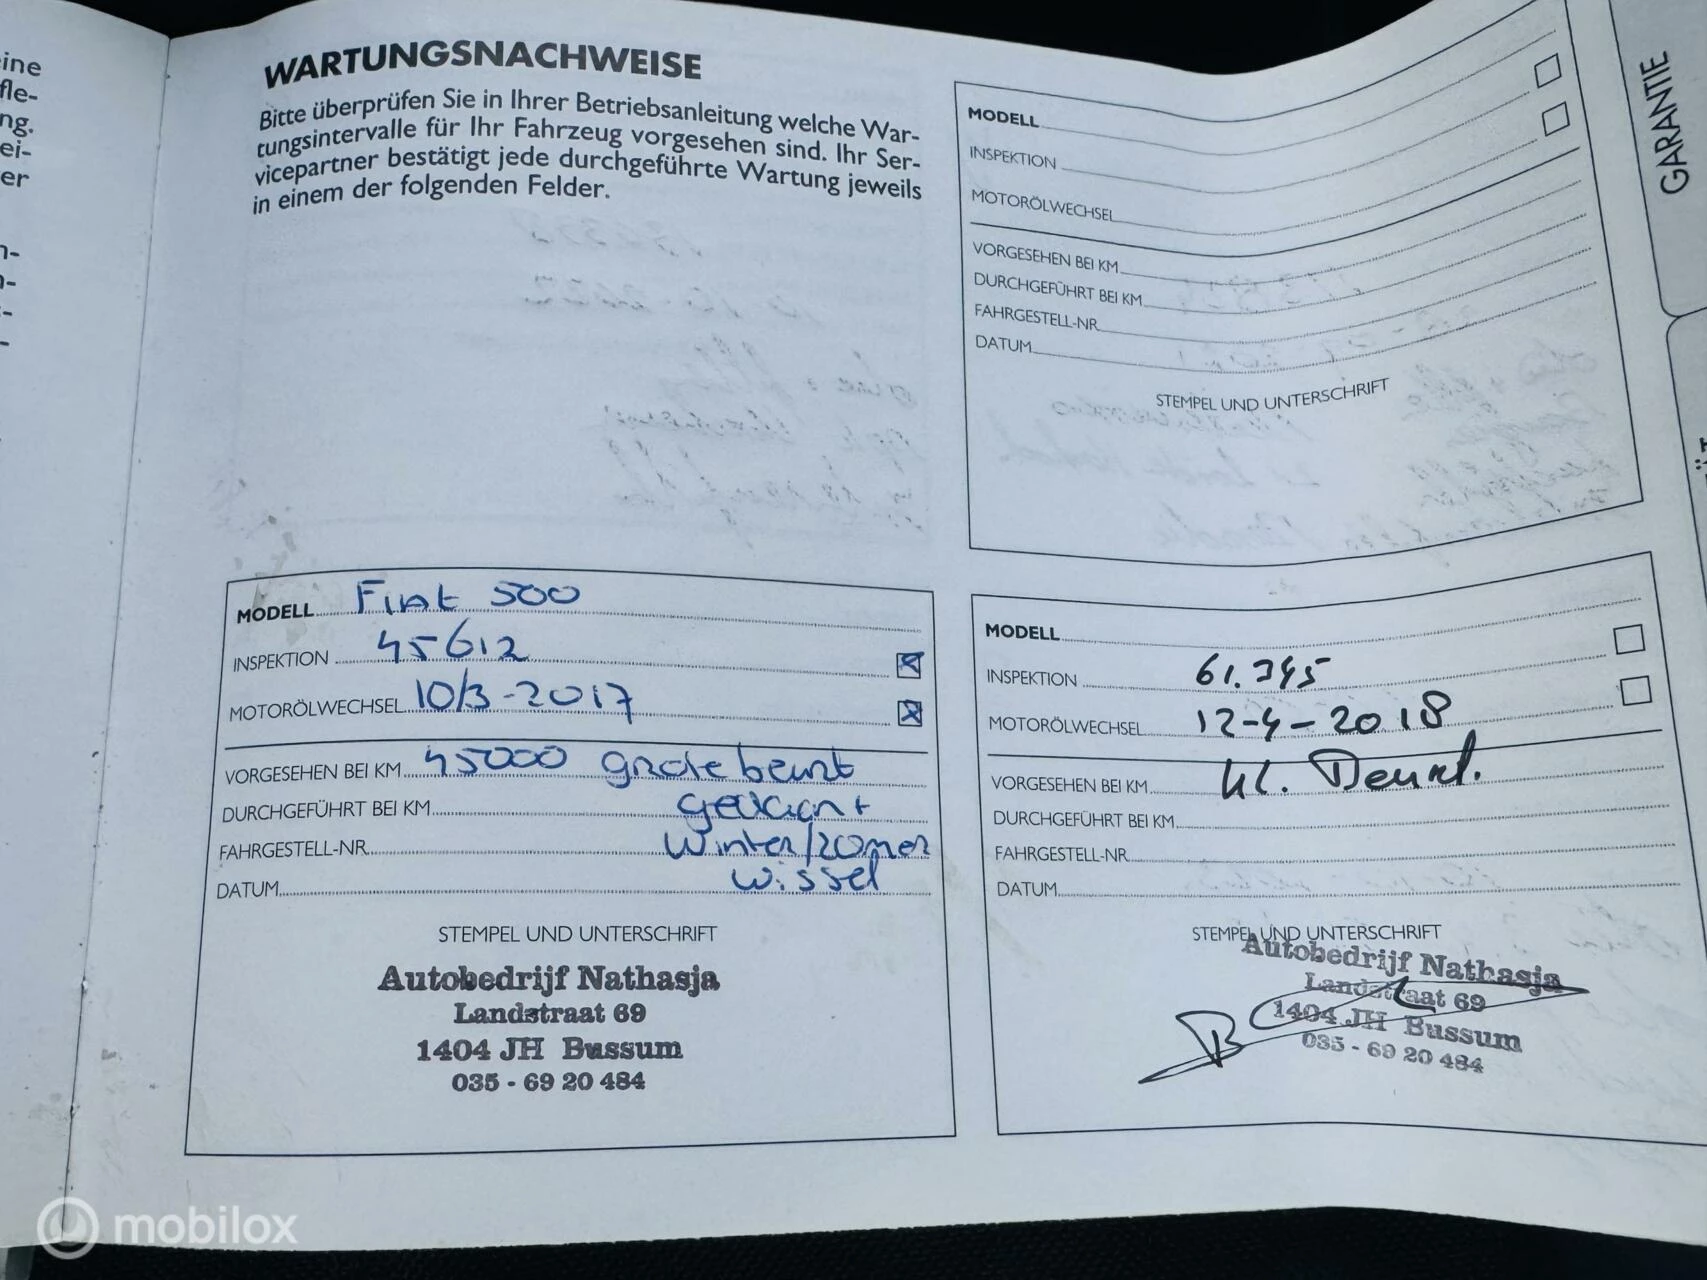 ine
fle-
ng.
ei-
er
n-
WARTUNGSNACHWEISE
Bitte überprüfen Sie in Ihrer Betriebsanleitung welche War-
tungsintervalle für Ihr Fahrzeug vorgesehen sind. Ihr Ser-
vicepartner bestätigt jede durchgeführte Wartung jeweils
in einem der folgenden Felder.
MODELL
INSPEKTION
MOTORÖLWECHSEL
VORGESEHEN BEI KM
DURCHGEFÜHRT BEI KM
FAHRGESTELL-NR.
DATUM
STEMPEL UND UNTERSCHRIFT
MODELL Fiat 500
INSPEKTION 45612
MOTORÖLWECHSEL 10/3-2017
VORGESEHEN BEI KM 45000 grote beurt
DURCHGEFÜHRT BEI KM
FAHRGESTELL-NR. Winter/zomer
DATUM wissel
STEMPEL UND UNTERSCHRIFT
Autobedrijf Nathasja
Landstraat 69
1404 JH Bussum
035 - 69 20 484
MODELL
INSPEKTION 61.345
MOTORÖLWECHSEL 12-4-2018
VORGESEHEN BEI KM kl. Beurt.
DURCHGEFÜHRT BEI KM
FAHRGESTELL-NR.
DATUM
STEMPEL UND UNTERSCHRIFT
Autobedrijf Nathasja
Landstraat 69
1404 JH Bussum
035 - 69 20 484
GARANTIE
mobilox